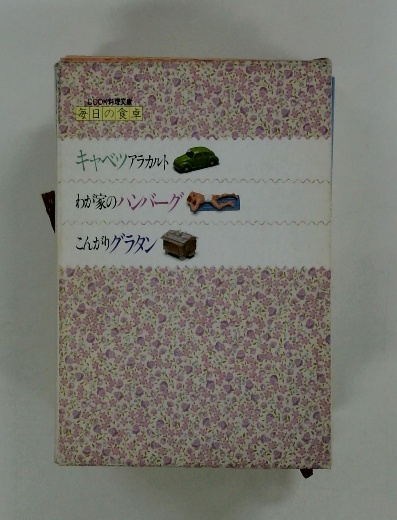 COOK料理文庫
毎日の食卓
キャベツアラカルト
わが家のハンバーグ
こんがりグラタン